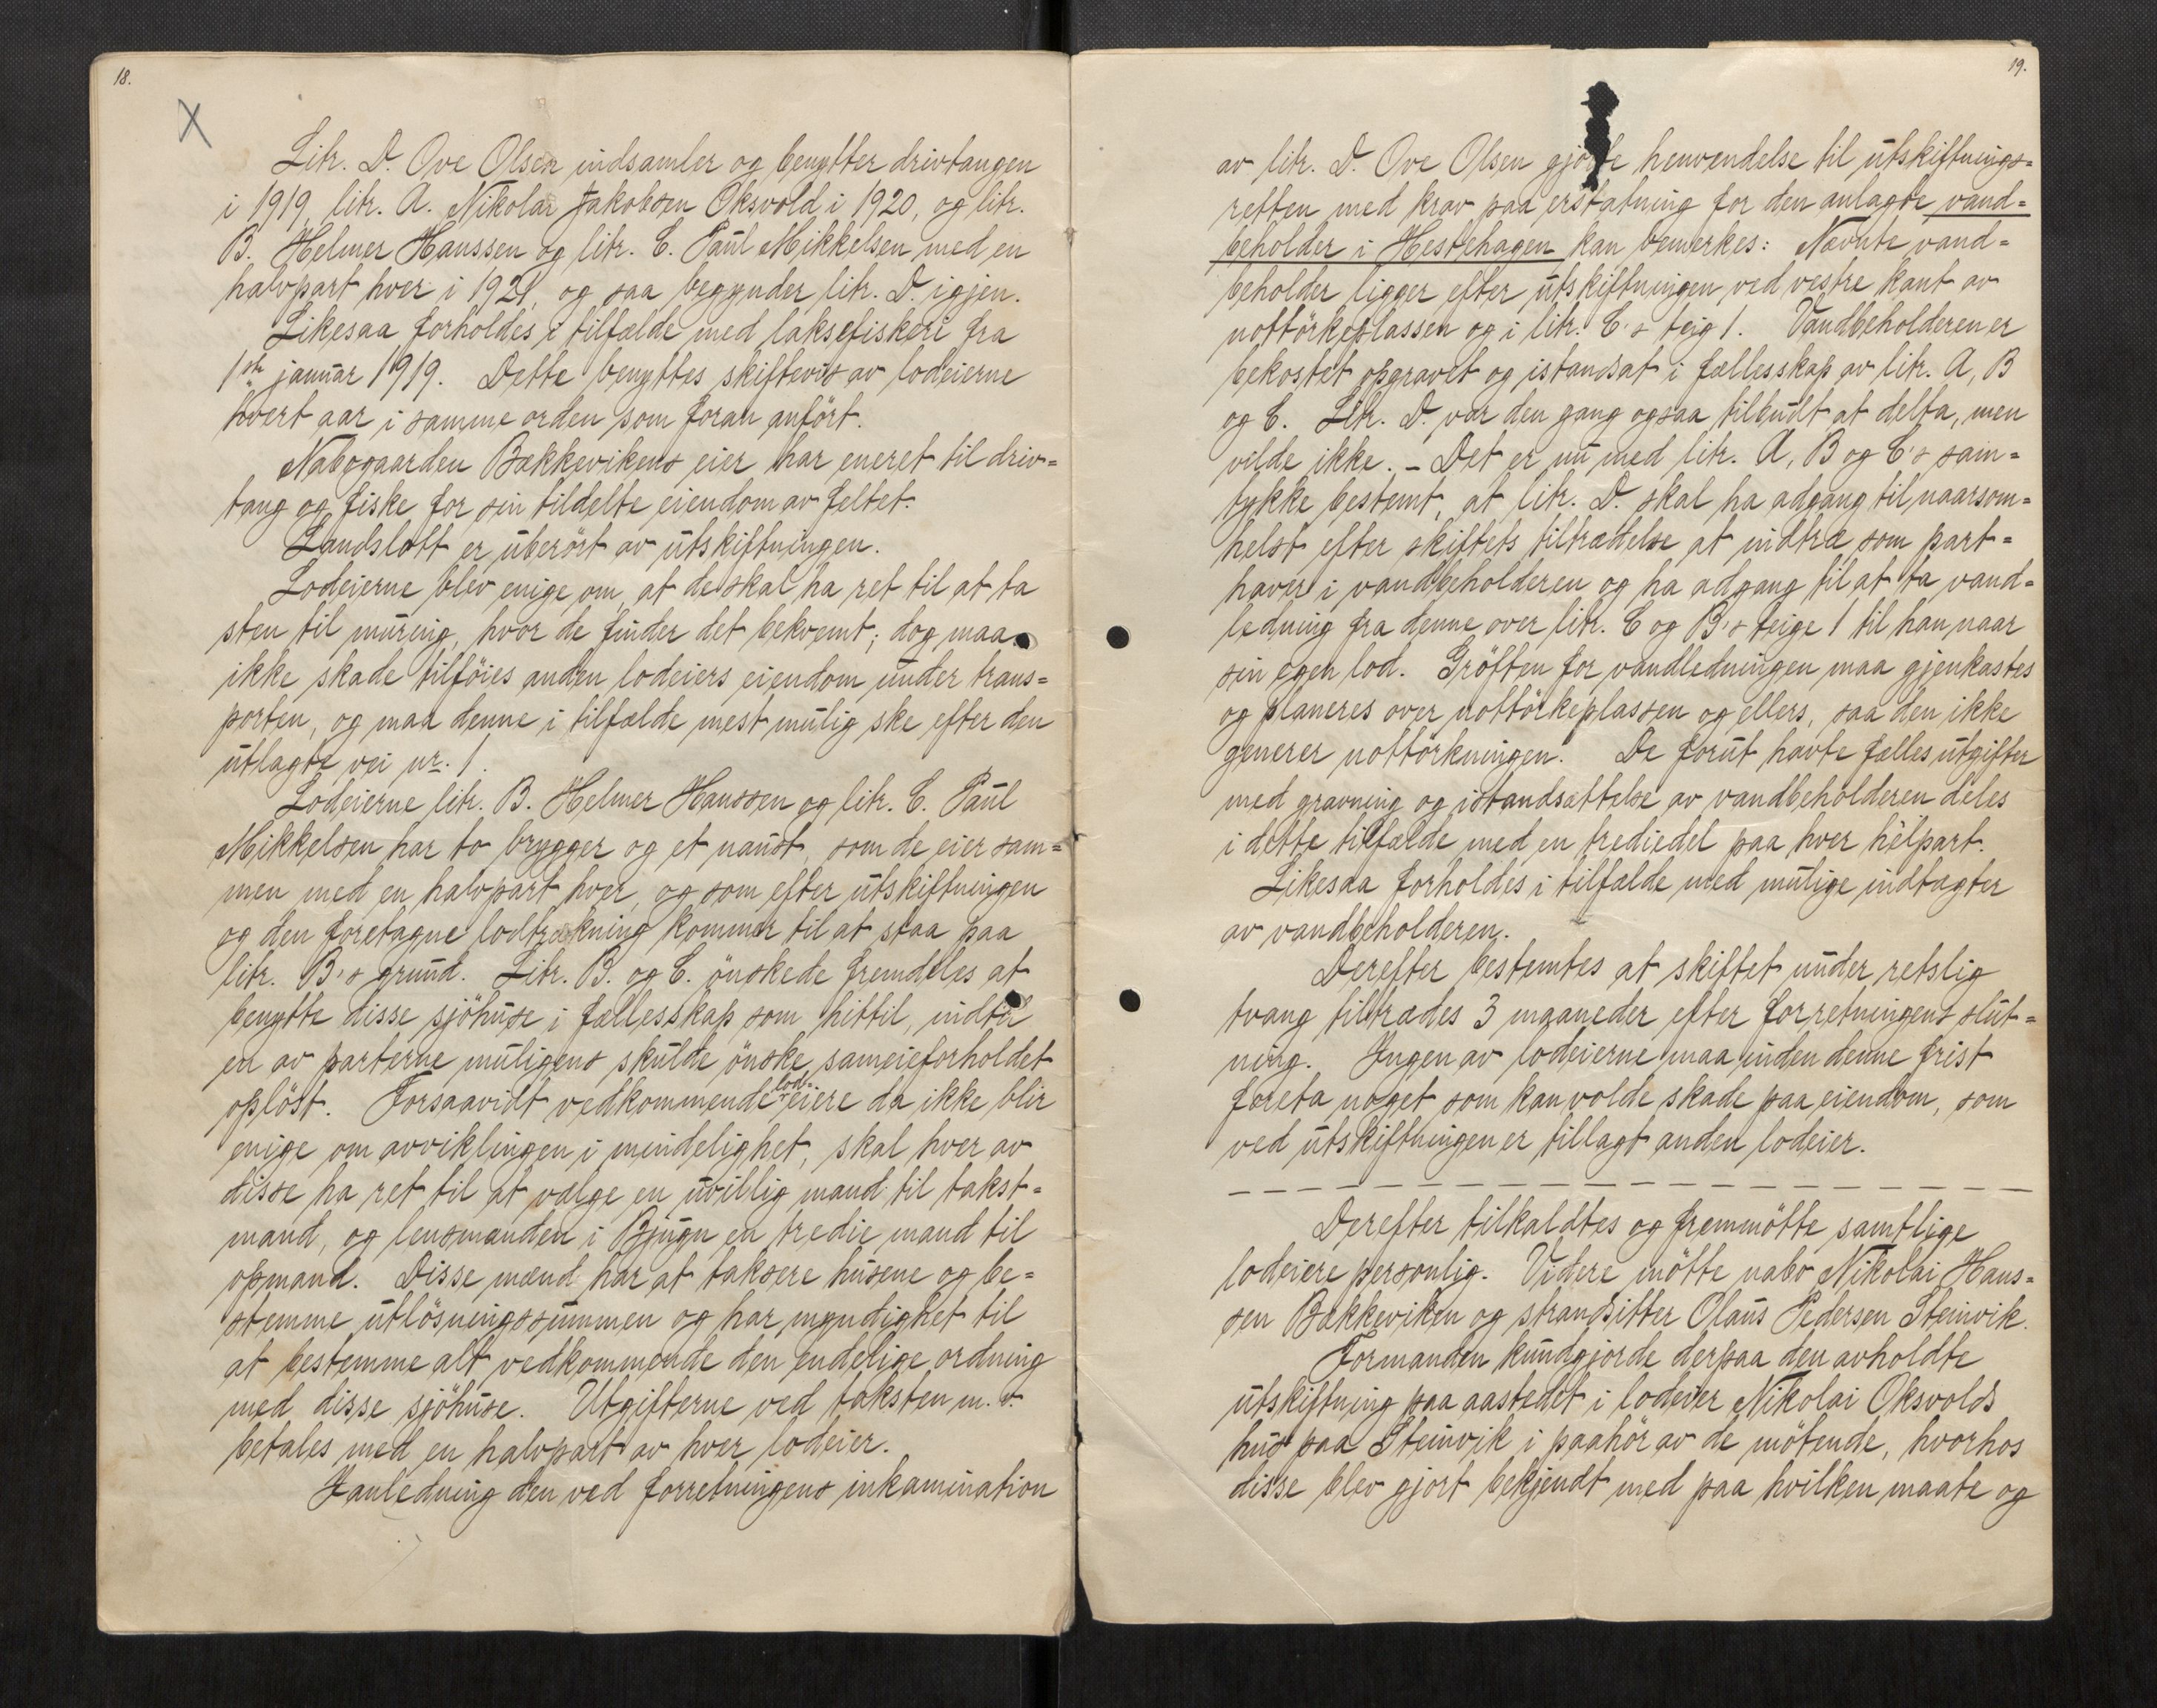 18.
X
Litr. D. Ove Olsen indsamler og benytter drivtangen
i 1919, litr. A. Nikolai Jakobsen Oksvold i 1920, og litr.
B. Helmer Hanssen og litr. C. Paul Mikkelsen med en
halvpart hver i 1921, og saa begynder litr. D. igjen.
Likesaa forholdes i tilfælde med laksefiskeri fra
1ste januar 1919. Dette benyttes skiftevis av lodeierne
hvert aar i samme orden som foran anført.
Nabogaarden Bækkevikens eier har eneret til driv=
tang og fiske for sin tildelte eiendom av feltet.
Landslott er uberört av utskiftningen.
Lodeierne blev enige om, at de skal ha ret til at ta
sten til muring, hvor de finder det bekvemt; dog maa
ikke skade tilföies anden lodeiers eiendom under trans=
porten, og maa denne i tilfælde mest mulig ske efter den
utlagte vei nr. 1.
Lodeierne litr. B. Helmer Hanssen og litr. C. Paul
Mikkelsen har to brygger og et naust, som de eier sam=
men med en halvpart hver, og som efter utskiftningen
og den foretagne lodtrækning kommer til at staa paa
litr. B's grund. Litr. B. og C. önskede fremdeles at
benytte disse sjöhuse i fællesskap som hittil, indtil
en av parterne muligens skulde önske sameieforholdet
oplöst. Forsaavidt vedkommende lod=eiere da ikke blir
enige om avviklingen i mindelighet, skal hver av
disse ha ret til at vælge en uvillig mand til takst=
mand, og lensmanden i Bjugn en tredie mand til
opmand. Disse mænd har at taksere husene og be=
stemme utlösningssummen og har myndighet til
at bestemme alt vedkommende den endelige ordning
med disse sjöhuse. Utgifterne ved taksten m. v.
betales med en halvpart av hver lodeier.
I anledning den ved forretningens inkamination
19.
av litr. D. Ove Olsen gjorte henvendelse til utskiftnings=
retten med krav paa erstatning for den anlagte vand=
beholder i Hestehagen kan bemerkes: Nævnte vand=
beholder ligger efter utskiftningen ved vestre kant av
nottörkeplassen og i litr. C's teig 1. Vandbeholderen er
bekostet opgravet og istandsat i fællesskap av litr. A, B
og C. Litr. D. var den gang ogsaa tilbudt at delta, men
vilde ikke. – Det er nu med litr. A, B og C's sam=
tykke bestemt, at litr. D. skal ha adgang til naarsom=
helst efter skiftets tiltrædelse at indtræ som part=
haver i vandbeholderen og ha adgang til at ta vand=
ledning fra denne over litr. C og B's teige 1 til han naar
sin egen lod. Gröften for vandledningen maa gjenkastes
og planeres over nottörkeplassen og ellers, saa den ikke
generer nottörkningen. De forut havte fælles utgifter
med gravning og istandsættelse av vandbeholderen deles
i dette tilfælde med en trediedel paa hver helpart.
Likesaa forholdes i tilfælde med mulige indtægter
av vandbeholderen.
Derefter bestemtes at skiftet under retslig
tvang tiltrædes 3 maaneder efter forretningens slut=
ning. Ingen av lodeierne maa inden denne frist
foreta noget som kan volde skade paa eiendom, som
ved utskiftningen er tillagt anden lodeier.
Derefter tilkaldtes og fremmötte samtlige
lodeiere personlig. Videre mötte nabo Nikolai Hans=
sen Bækkeviken og strandsitter Olaus Pedersen Steinvik.
Formanden kundgjorde derpaa den avholdte
utskiftning paa aastedet i lodeier Nikolai Oksvolds
hus paa Steinvik i paahör av de mötende, hvorhos
disse blev gjort bekjendt med paa hvilken maate og